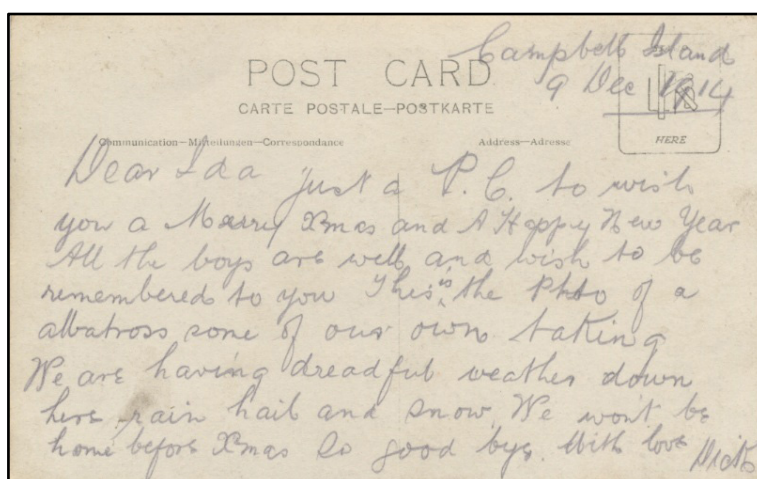 Campbell Island
9 Dec 1914
POST CARD
CARTE POSTALE—POSTKARTE
HERE
Communication—Mitteilungen—Correspondance
Address—Adresse
Dear Ida just a P.C. to wish
you a Merry Xmas and A Happy New Year
All the boys are well, and wish to be
remembered to you This is the Phto of a
albatross some of our own taking
We are having dreadful weather down
here rain hail and snow, We won't be
home before Xmas So good bye. With love Dick